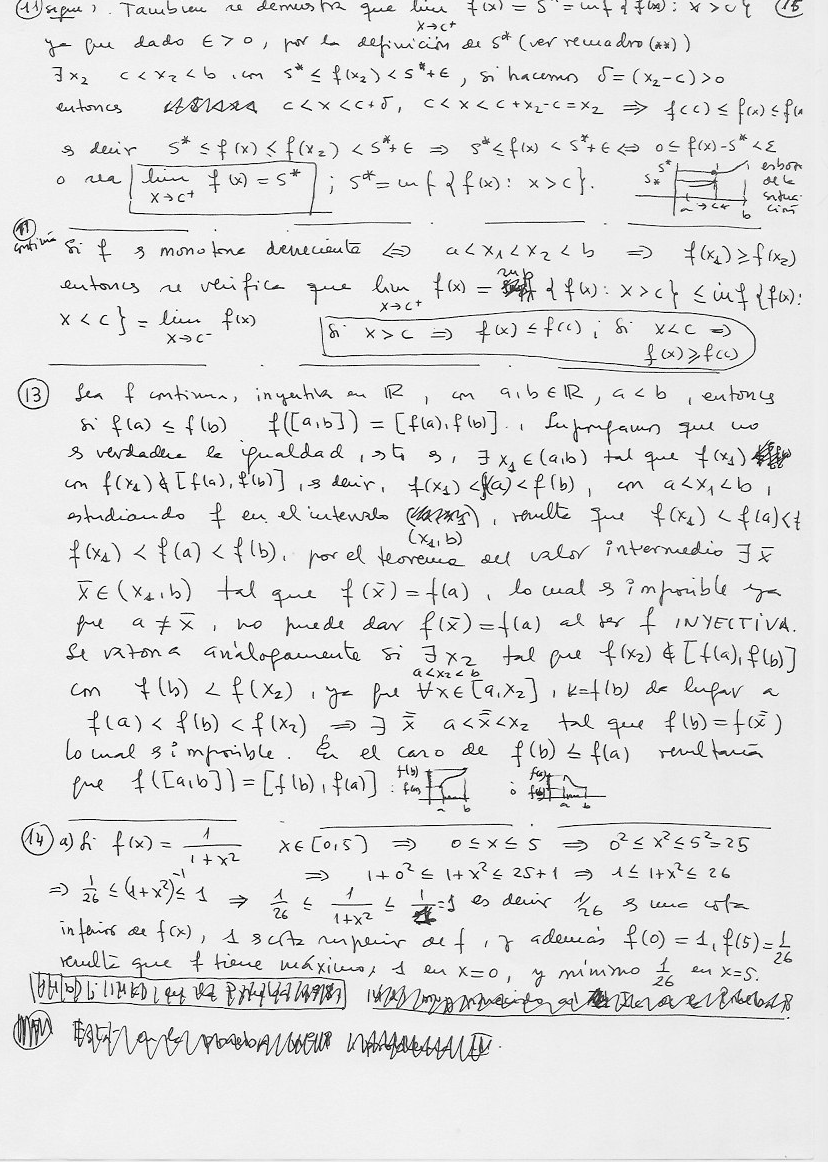 (11) sigue). También se demuestra que lim f(x) = S* = inf {f(x): x > c} (15
x→c⁺
ya que dado ϵ > 0, por la definición de S* (ver recuadro (**))
∃ x₂ c < x₂ < b, con S* ≤ f(x₂) < S*+ϵ, si hacemos δ = (x₂-c) > 0
entonces c < x < c+δ, c < x < c+x₂-c = x₂ ⇒ f(c) ≤ f(x) ≤ f(x
es decir S* ≤ f(x) ≤ f(x₂) < S*+ϵ ⇒ S* ≤ f(x) < S*+ϵ ⇔ 0 ≤ f(x)-S* < ε
o sea lim f(x) = S* ; S* = inf {f(x): x > c}.
x→c⁺
S* S* a b
esbozo de la situación
(11) continúa Si f es monótona decreciente ⇔ a < x₁ < x₂ < b ⇒ f(x₁) ≥ f(x₂)
entonces se verifica que lim f(x) = sup {f(x): x > c} ≤ inf {f(x):
x→c⁺
x < c} = lim f(x)
x→c⁻
Si x > c ⇒ f(x) ≤ f(c); Si x < c ⇒
f(x) ≥ f(c)
(13) Sea f continua, inyectiva en ℝ, con a,b ∈ ℝ, a < b, entonces
si f(a) ≤ f(b) f([a,b]) = [f(a), f(b)]. Supongamos que no
es verdadera la igualdad, esto es, ∃ x₁ ∈ (a,b) tal que f(x₁)
con f(x₁) ∉ [f(a), f(b)], es decir, f(x₁) < f(a) < f(b), con a < x₁ < b,
estudiando f en el intervalo (x₁,b), resulta que f(x₁) < f(a) < f
f(x₁) < f(a) < f(b), por el teorema del valor intermedio ∃ x̄
x̄ ∈ (x₁,b) tal que f(x̄) = f(a), lo cual es imposible ya
que a ≠ x̄, no puede dar f(x̄) = f(a) al ser f INYECTIVA.
Se razona análogamente si ∃ x₂ tal que f(x₂) ∉ [f(a), f(b)]
a<x₂<b
con f(b) < f(x₂), ya que ∀x ∈ [a,x₂], k = f(b) da lugar a
f(a) < f(b) < f(x₂) ⇒ ∃ x̿ a < x̿ < x₂ tal que f(b) = f(x̿)
lo cual es imposible. En el caso de f(b) ≤ f(a) resultaría
que f([a,b]) = [f(b), f(a)] : f(b) f(a) a b ó f(a) f(b) a b
(14) a) Si f(x) = 1/(1+x²) x ∈ [0,5] ⇒ 0 ≤ x ≤ 5 ⇒ 0² ≤ x² ≤ 5² = 25
⇒ 1+0² ≤ 1+x² ≤ 25+1 ⇒ 1 ≤ 1+x² ≤ 26
⇒ 1/26 ≤ (1+x²)⁻¹ ≤ 1 ⇒ 1/26 ≤ 1/(1+x²) ≤ 1/1 = 1 es decir 1/26 es una cota
inferior de f(x), 1 es cota superior de f, y además f(0) = 1, f(5) = 1/26
resulta que f tiene máximo, 1 en x=0, y mínimo 1/26 en x=5.